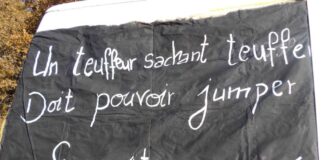 Un teuffeur sachant teuffer
Doit pouvoir jumper